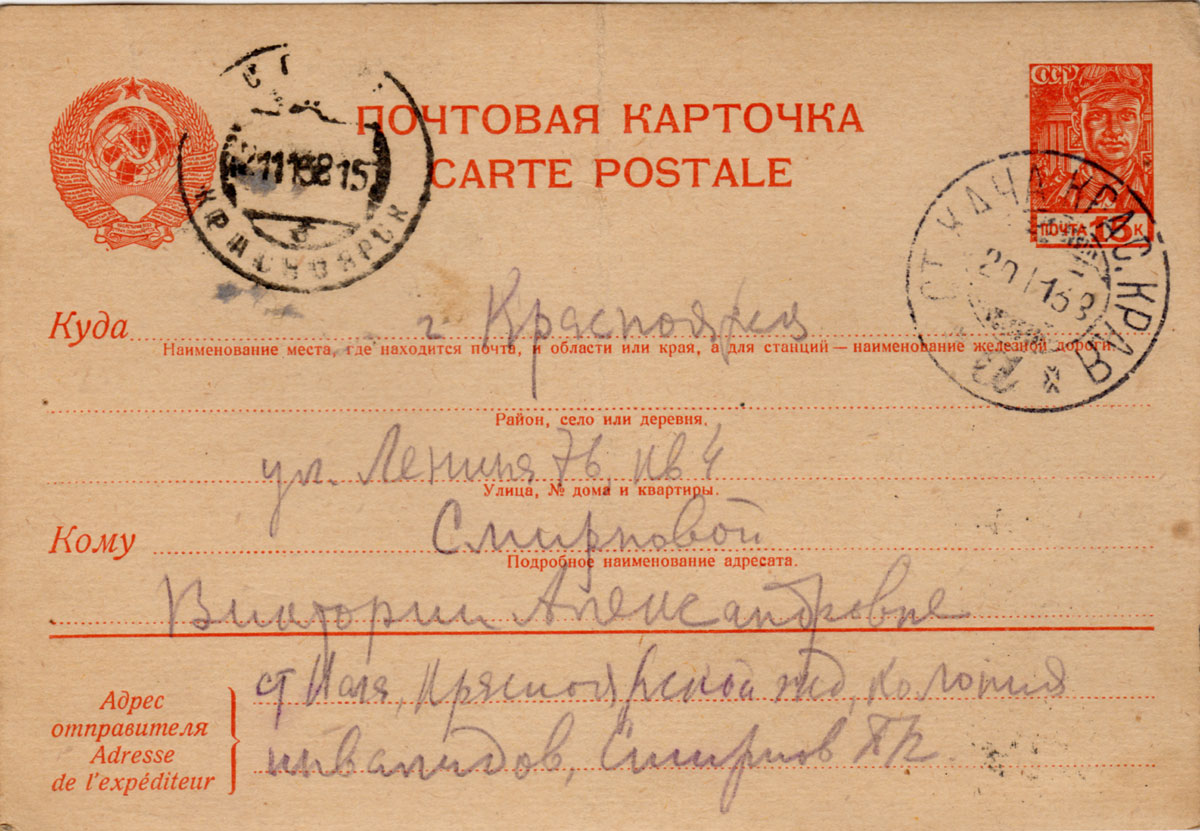 СССР
ПОЧТОВАЯ КАРТОЧКА
CARTE POSTALE
ПОЧТА 15 К
КРАСНОЯРСК
СТ. КАЧА КРАС. КРАЯ
Куда г Красноярск
Наименование места, где находится почта, и области или края, а для станций — наименование железной дороги.
Район, село или деревня.
ул. Ленина 76, кв 4
Улица, № дома и квартиры.
Кому Смирновой
Подробное наименование адресата.
Виктории Александровне
Адрес
отправителя
Adresse
de l'expéditeur
ст Красноярской жд, Колония
инвалидов, Смирнов